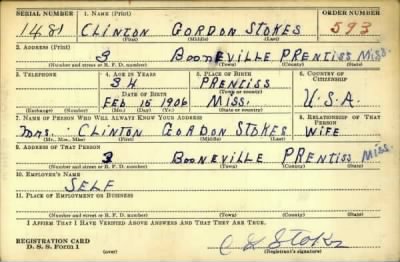 SERIAL NUMBER 1. NAME (Print) ORDER NUMBER
1481 CLINTON GORDON STOKES 593
(First) (Middle) (Last)
2. ADDRESS (Print)
3 BOONEVILLE PRENTISS MISS.
(Number and street or R. F. D. number) (Town) (County) (State)
3. TELEPHONE 4. AGE IN YEARS 5. PLACE OF BIRTH 6. COUNTRY OF CITIZENSHIP
34 PRENTISS
DATE OF BIRTH (Town or county)
FEB 15 1906 MISS. U.S.A.
(Exchange) (Number) (Mo.) (Day) (Yr.) (State or country)
7. NAME OF PERSON WHO WILL ALWAYS KNOW YOUR ADDRESS 8. RELATIONSHIP OF THAT PERSON
MRS. CLINTON GORDON STOKES WIFE
(Mr., Mrs., Miss) (First) (Middle) (Last)
9. ADDRESS OF THAT PERSON
3 BOONEVILLE PRENTISS MISS.
(Number and street or R. F. D. number) (Town) (County) (State)
10. EMPLOYER'S NAME
SELF
11. PLACE OF EMPLOYMENT OR BUSINESS
(Number and street or R. F. D. number) (Town) (County) (State)
I AFFIRM THAT I HAVE VERIFIED ABOVE ANSWERS AND THAT THEY ARE TRUE.
REGISTRATION CARD
D. S. S. Form 1 (Registrant's signature)
C G Stokes